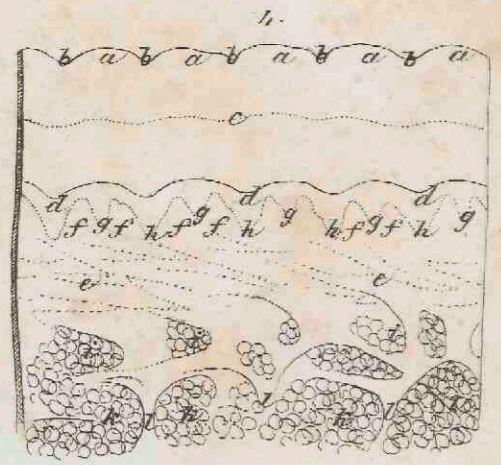 4.
b a b a b a b a b a
c
d d d
f g f h f g f h g h f g f h g
e e
i i i
k l k l k l i